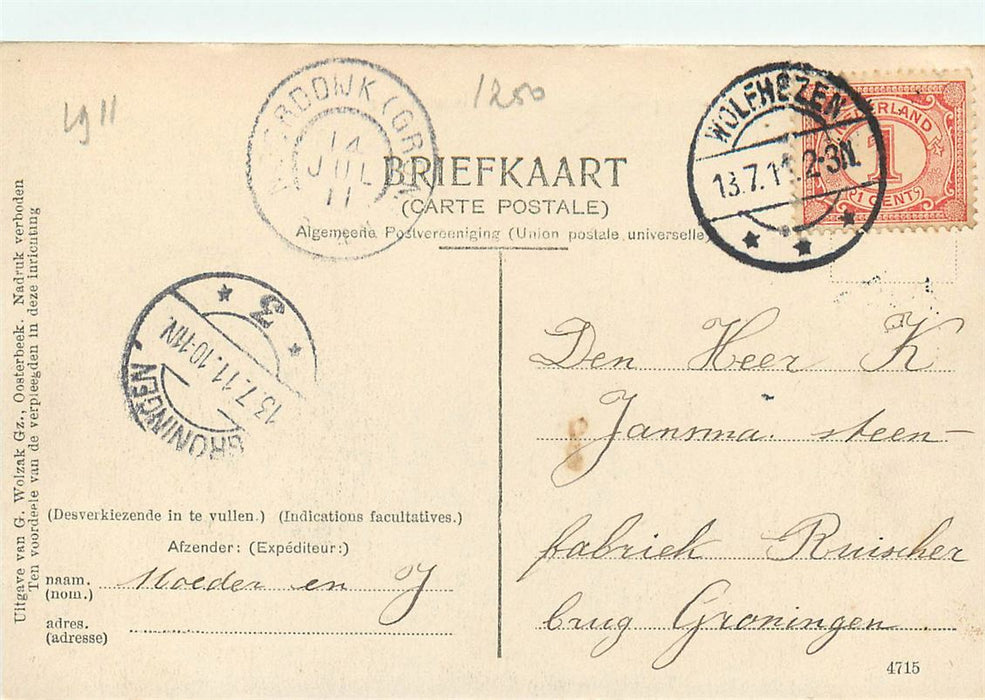 1911
1250
NOORDDIJK (GR.)
14
JUL
11
WOLFHEZEN
13.7.11.2-3N.
NEDERLAND
1
1 CENT
BRIEFKAART
(CARTE POSTALE)
Algemeene Postvereeniging (Union postale universelle)
3
13.7.11.10-11N.
GRONINGEN
Uitgave van G. Wolzak Gz., Oosterbeek. Nadruk verboden
Ten voordeele van de verpleegden in deze inrichting
Den Heer K
Jansma. steen-
fabriek Ruischer
brug Groningen
(Desverkiezende in te vullen.) (Indications facultatives.)
Afzender: (Expéditeur:)
naam. Moeder en J
(nom.)
adres.
(adresse)
4715